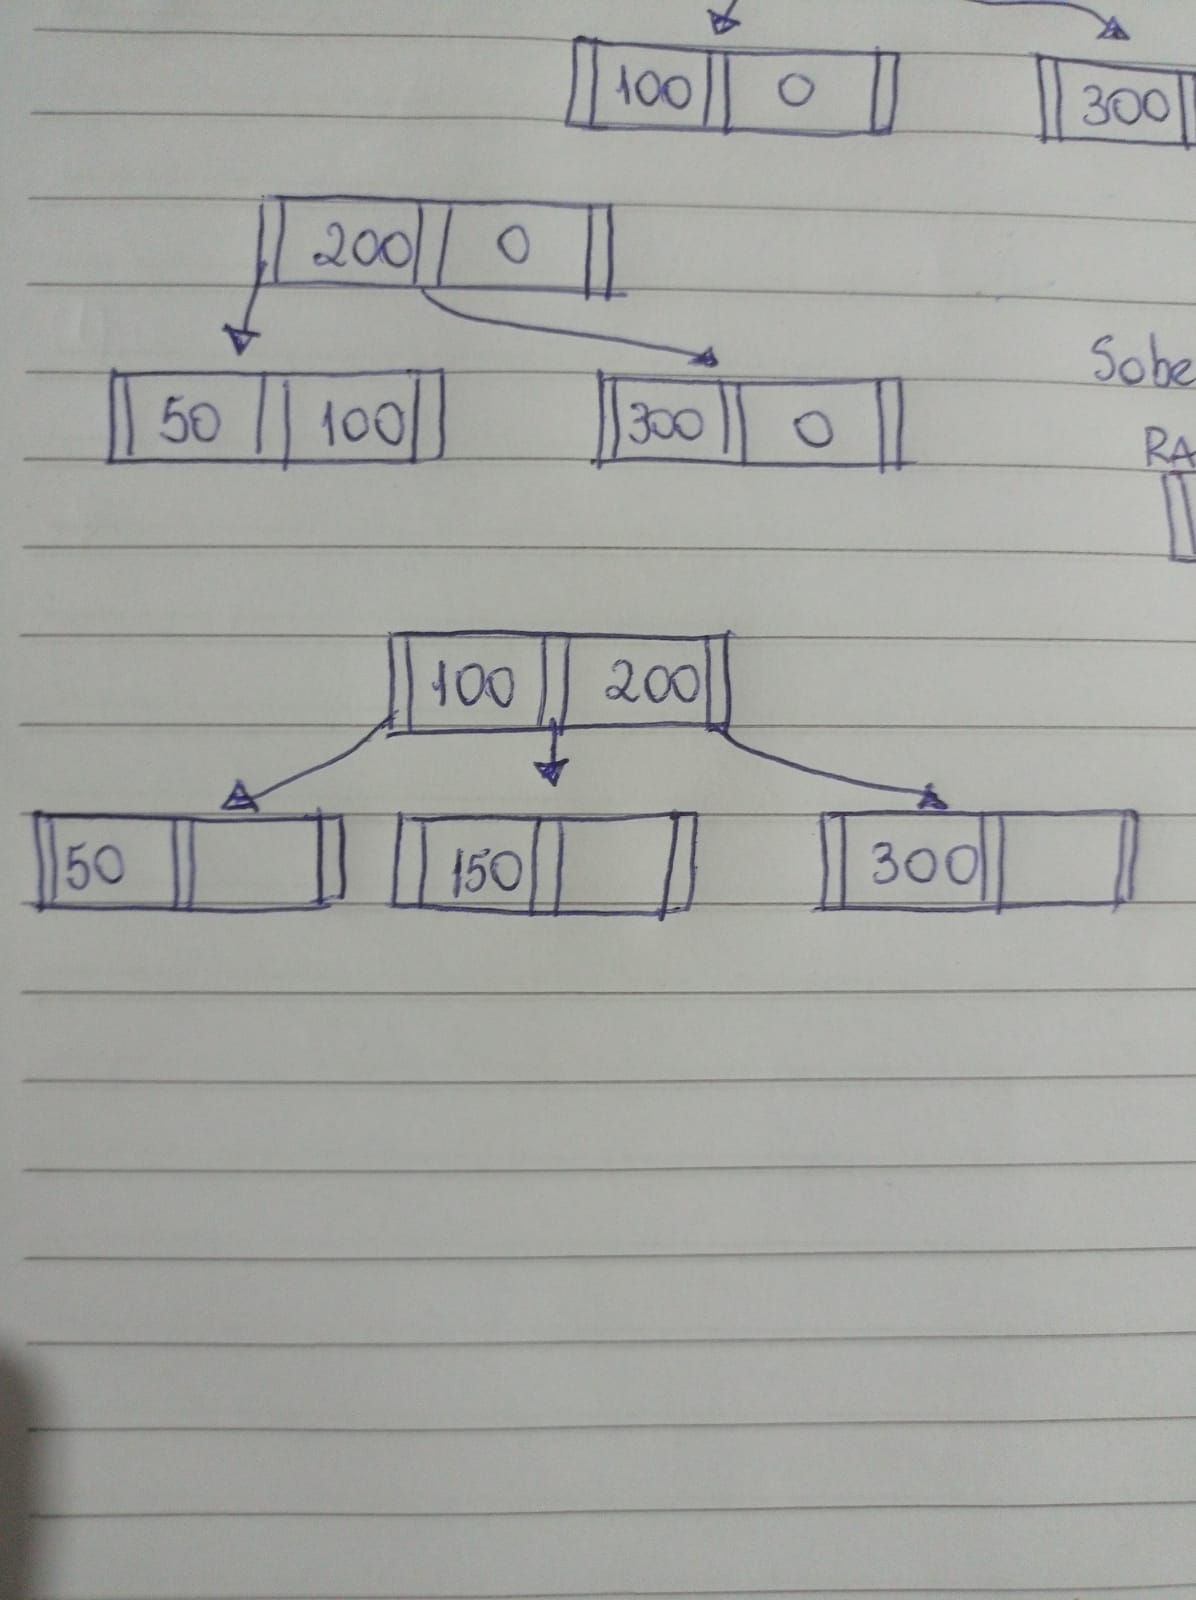 100 0 300
200 0
Sobe
50 100 300 0
RA
100 200
50 150 300